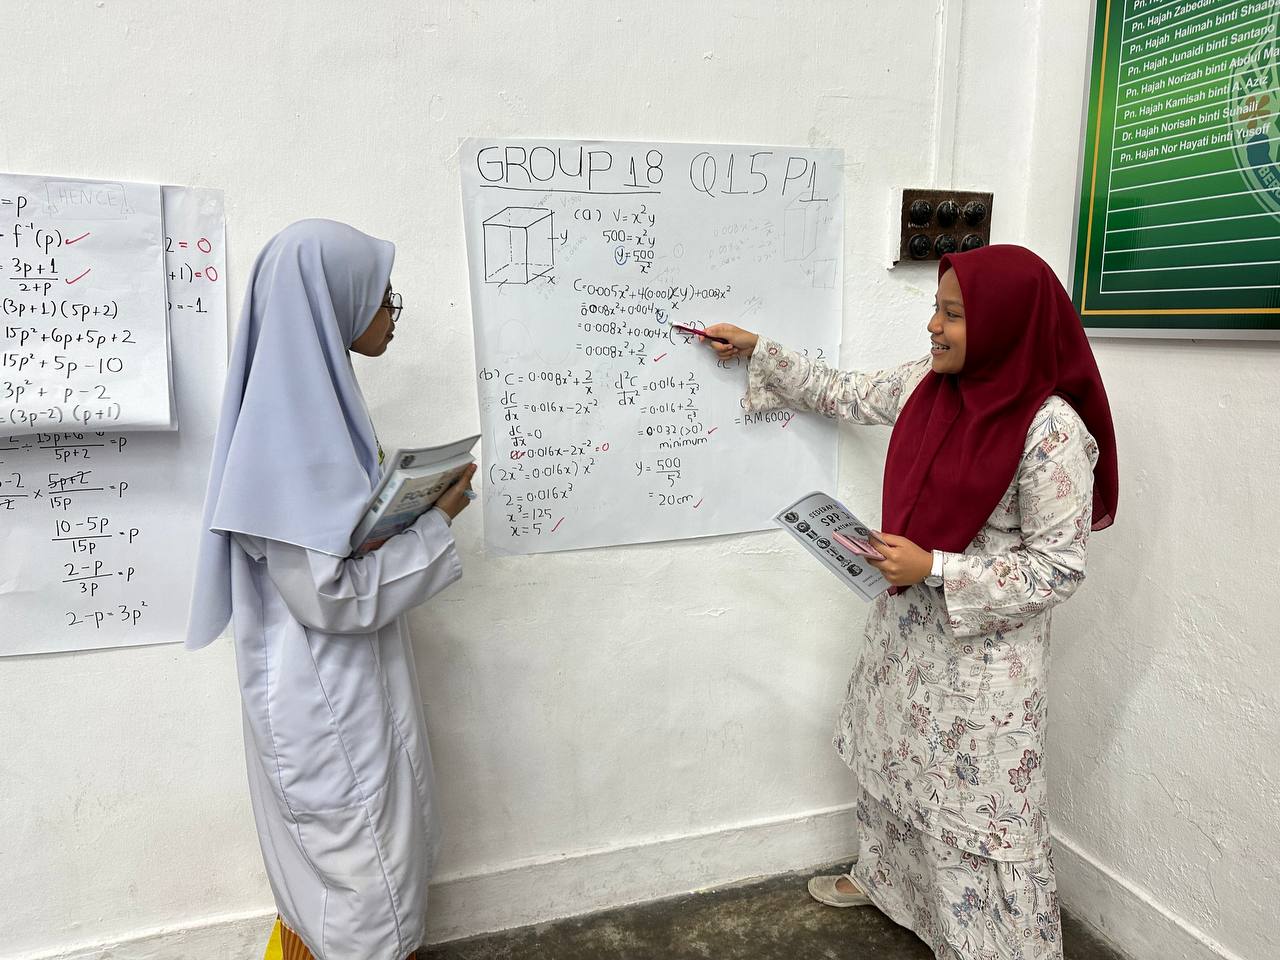 HENCE
= p
= f⁻¹(p)
= 3p+1/2+p
(3p+1)(5p+2)
15p²+6p+5p+2
15p²+5p-10
3p²+p-2
=(3p-2)(p+1)
2=0
+1)=0
p=-1
5p+2 =p
-2 × 5p+2/15p =p
10-5p/15p =p
2-p/3p =p
2-p=3p²
GROUP 18 Q15 P1
y
x
x
(a) V=x²y
500=x²y
y=500/x²
C=0.005x²+4(0.001xy)+0.003x²
=0.008x²+0.004xy
=0.008x²+0.004x(
=0.008x²+2/x
(b) C=0.008x²+2/x
dC/dx=0.016x-2x⁻²
dC/dx=0
0.016x-2x⁻²=0
(2x⁻²=0.016x)x²
2=0.016x³
x³=125
x=5
d²C/dx²=0.016+2/x³
=0.016+2/5³
=0.032(>0)
minimum
y=500/5²
=20cm
=RM6000
Pn. Hajah Zabedah
Pn. Hajah Halimah binti Shaaba
Pn. Hajah Junaidi binti Santano
Pn. Hajah Norizah binti Abdul Ma
Pn. Hajah Kamisah binti A. Aziz
Dr. Hajah Norisah binti Suhaili
Pn. Hajah Nor Hayati binti Yusoff
BER
FOCUS
SBP